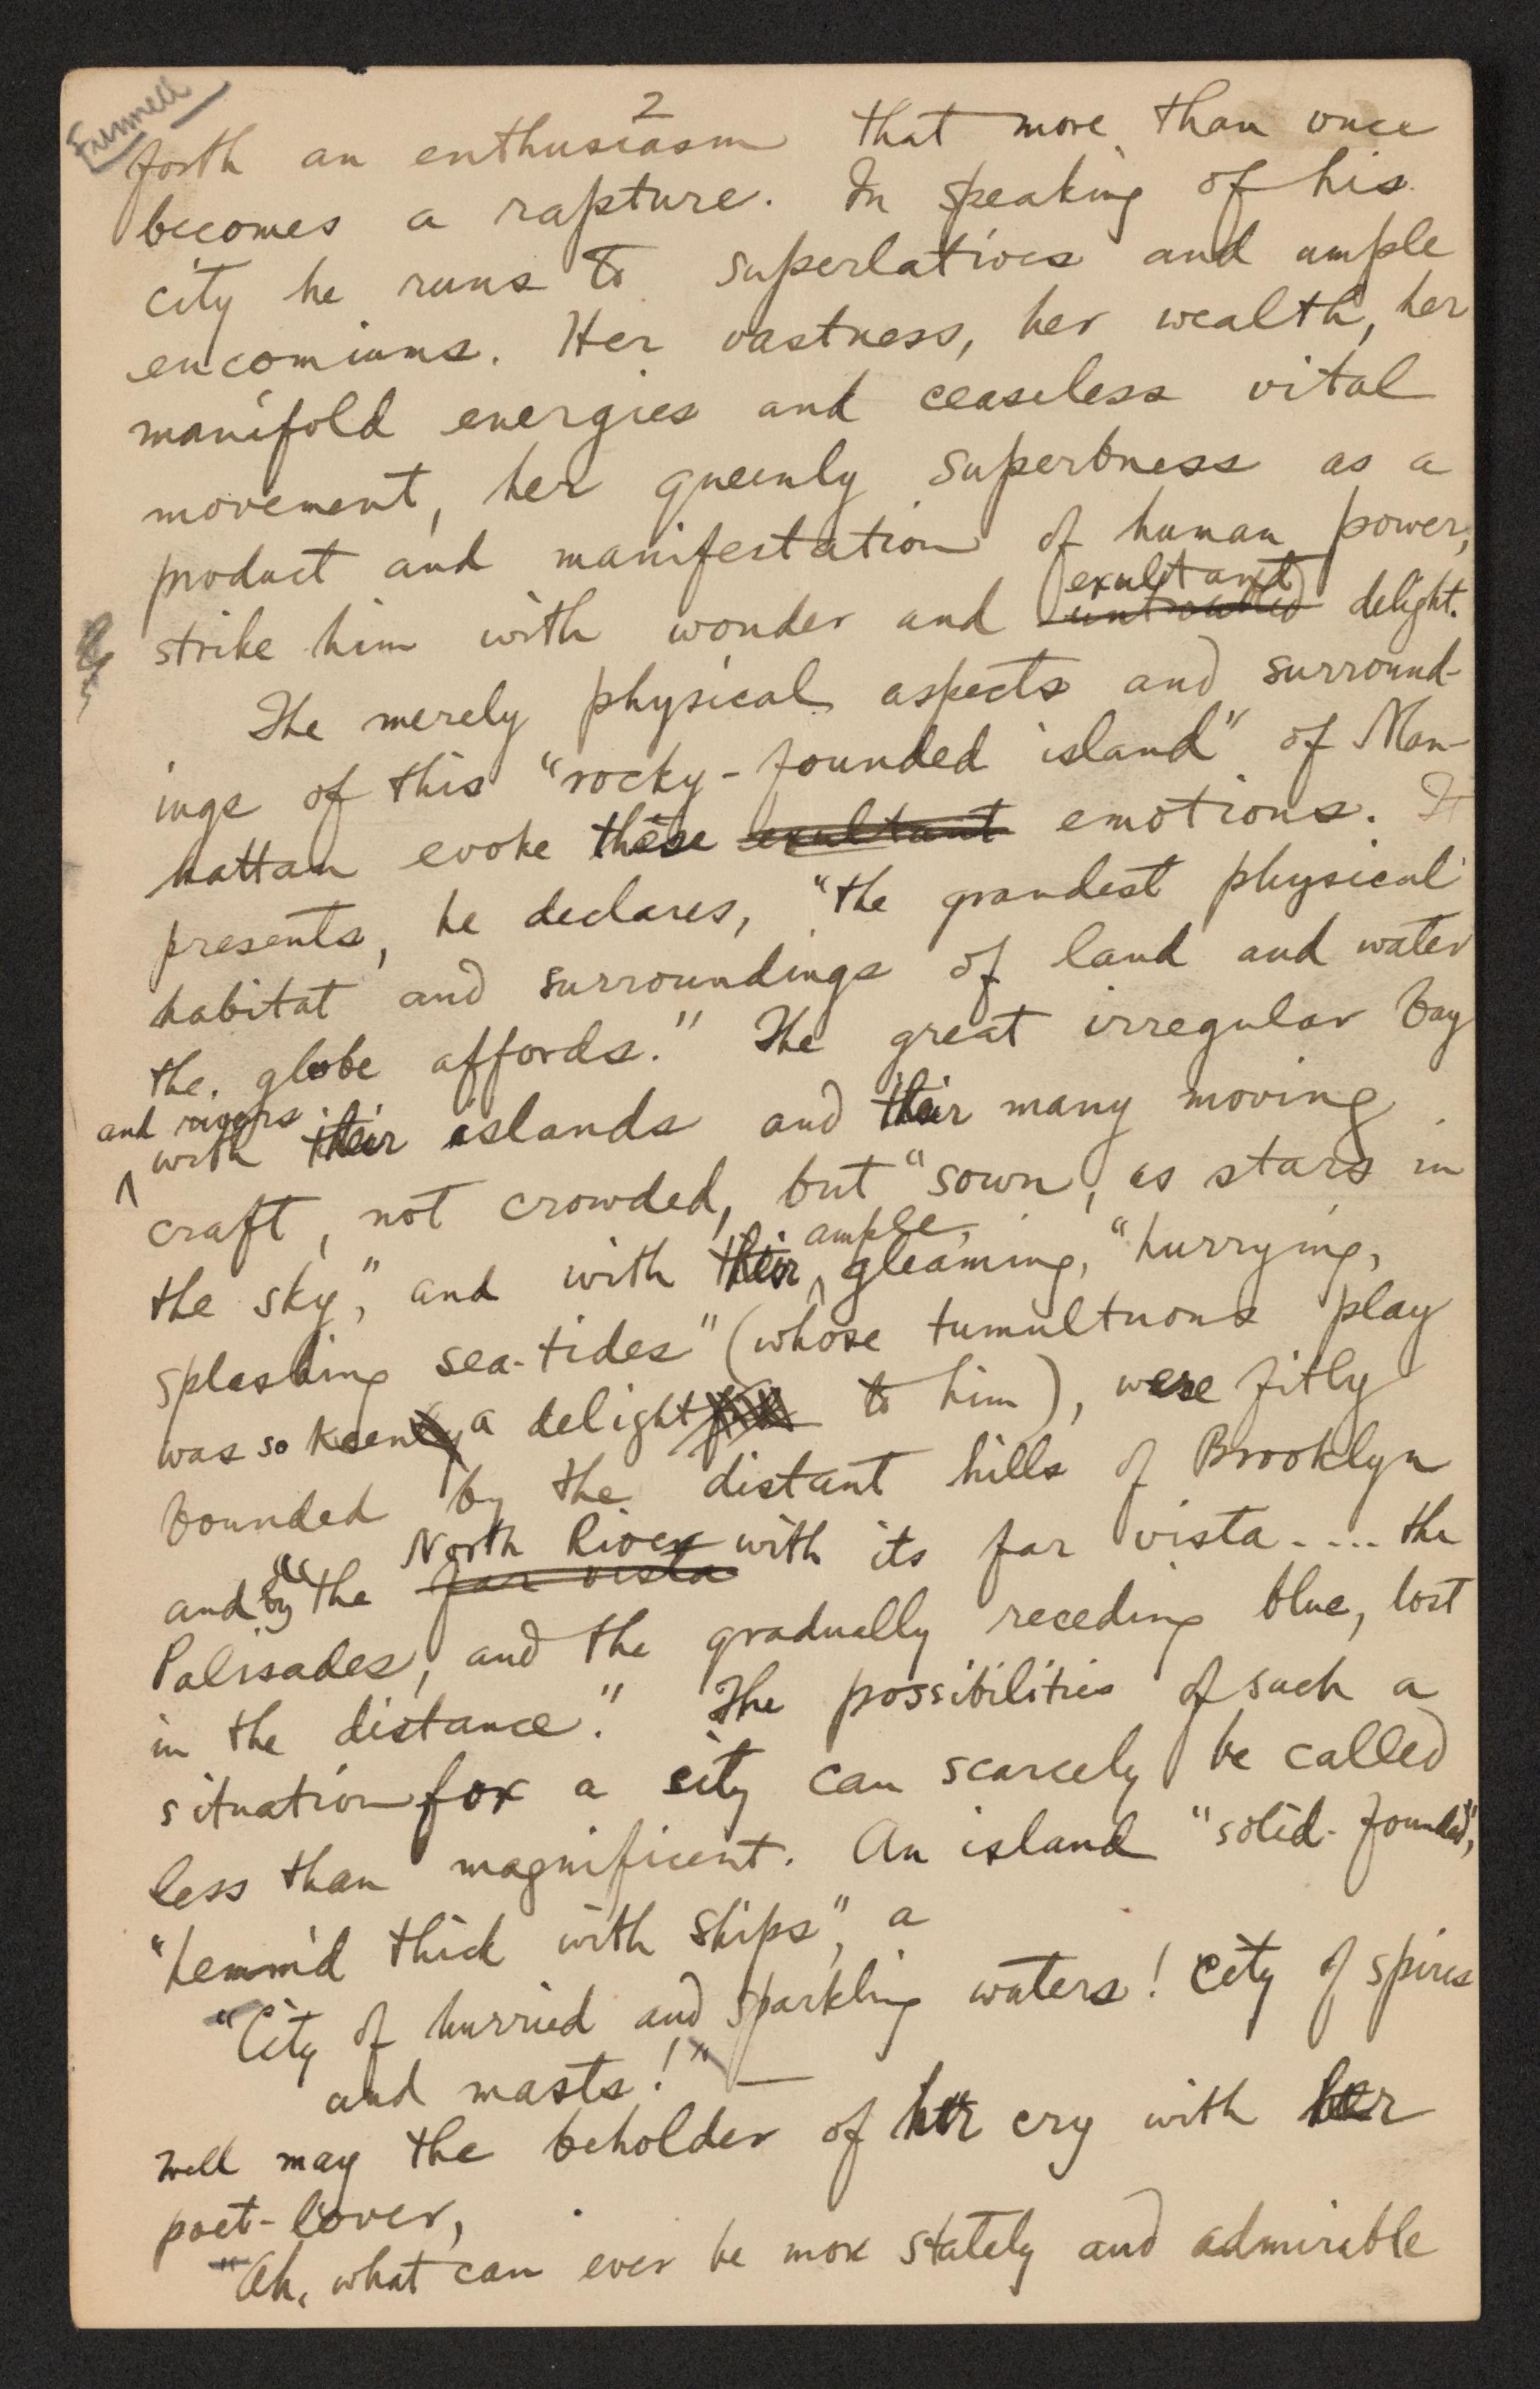 2
forth an enthusiasm that more than once
becomes a rapture. In speaking of his
city he runs to superlatives and ample
encomiums. Her vastness, her wealth, her
manifold energies and ceaseless vital
movement, her queenly superbness as a
product and manifestation of human power,
exultant
strike him with wonder and delight.
The merely physical aspects and surround-
ings of this "rocky-founded island" of Man-
hattan evoke these exultant emotions. It
presents, he declares, "the grandest physical
habitat and surroundings of land and water
the globe affords." The great irregular bay
and rivers
with their islands and their many moving
craft, not crowded, but "sown, as stars in
ample,
the sky," and with their gleaming, "hurrying,
splashing sea-tides" (whose tumultuous play
was so keen a delight to him), were fitly
bounded by the distant hills of Brooklyn
North River
and by "the far vista with its far vista .... the
Palisades, and the gradually receding blue, lost
in the distance." The possibilities of such a
situation for a city can scarcely be called
less than magnificent. An island "solid-founded,"
"hemm'd thick with ships", a
"City of hurried and sparkling waters! City of spires
and masts!" —
well may the beholder of her cry with her
poet-lover,
"Ah, what can ever be more stately and admirable